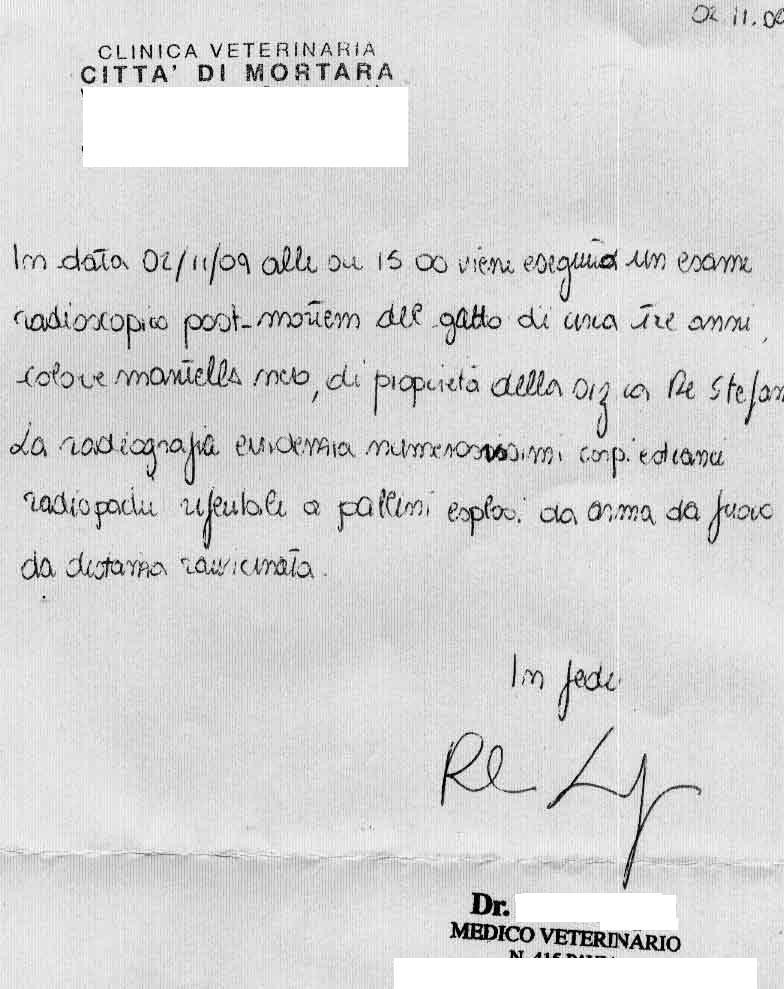 02.11.0
CLINICA VETERINARIA
CITTA' DI MORTARA
In data 02/11/09 alle ore 15 00 viene eseguito un esame
radioscopico post-mortem del gatto di circa tre anni,
colore mantello nero, di proprietà della Re Stefan
La radiografia evidenzia numerosissimi corpi estranei
radiopachi riferibili a pallini esplosi da arma da fuoco
da distanza ravvicinata.
In fede
Dr.
MEDICO VETERINARIO
N. 415